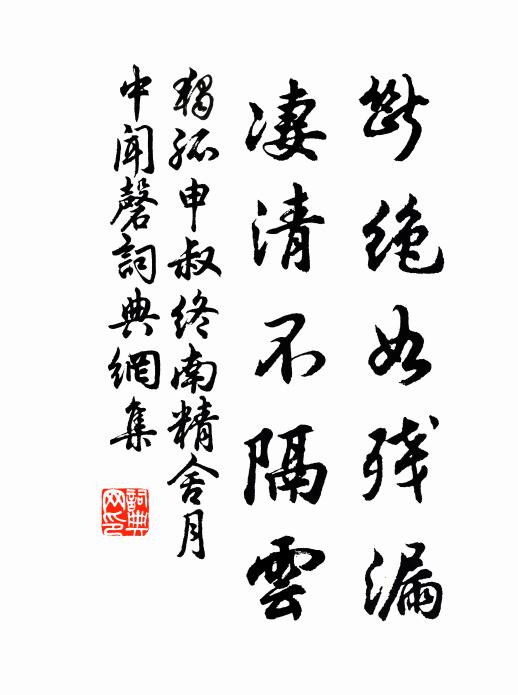 斷絶如殘漏
凄清不隔雲
獨孤申叔終南精舍月
中聞磬詞典網集
詞典
网印